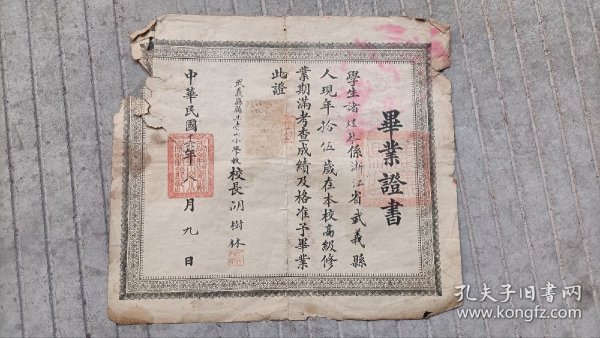 畢業證書
學生諸 係浙江省武義縣
人現年拾伍歲在本校高級修
業期滿考查成績及格准予畢業
此證
武義縣 小學校校長胡樹林
中華民國 年八月九日
孔夫子旧书网
www.kongfz.com